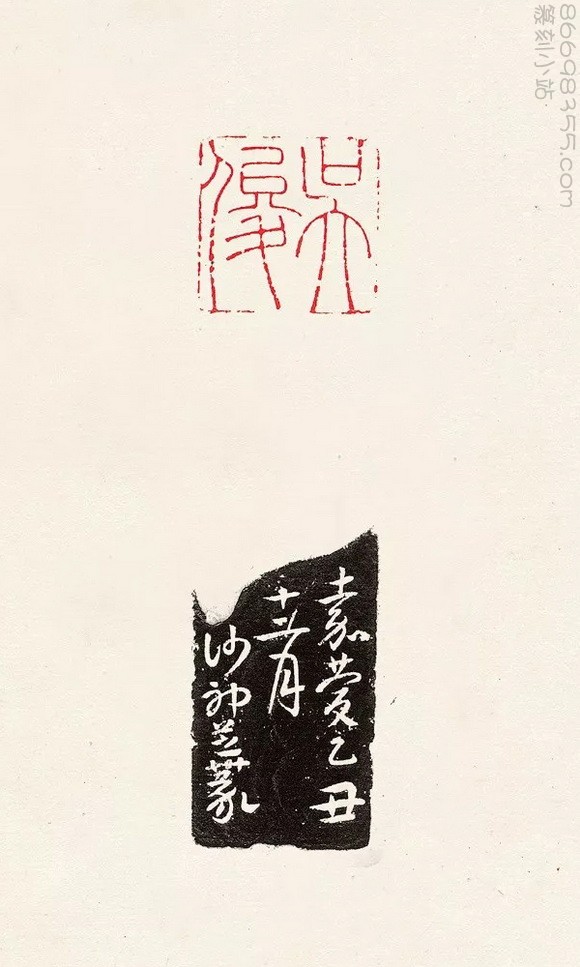 86698355.com
篆刻小站
吳
嘉慶乙丑
十二月
沙神芝篆